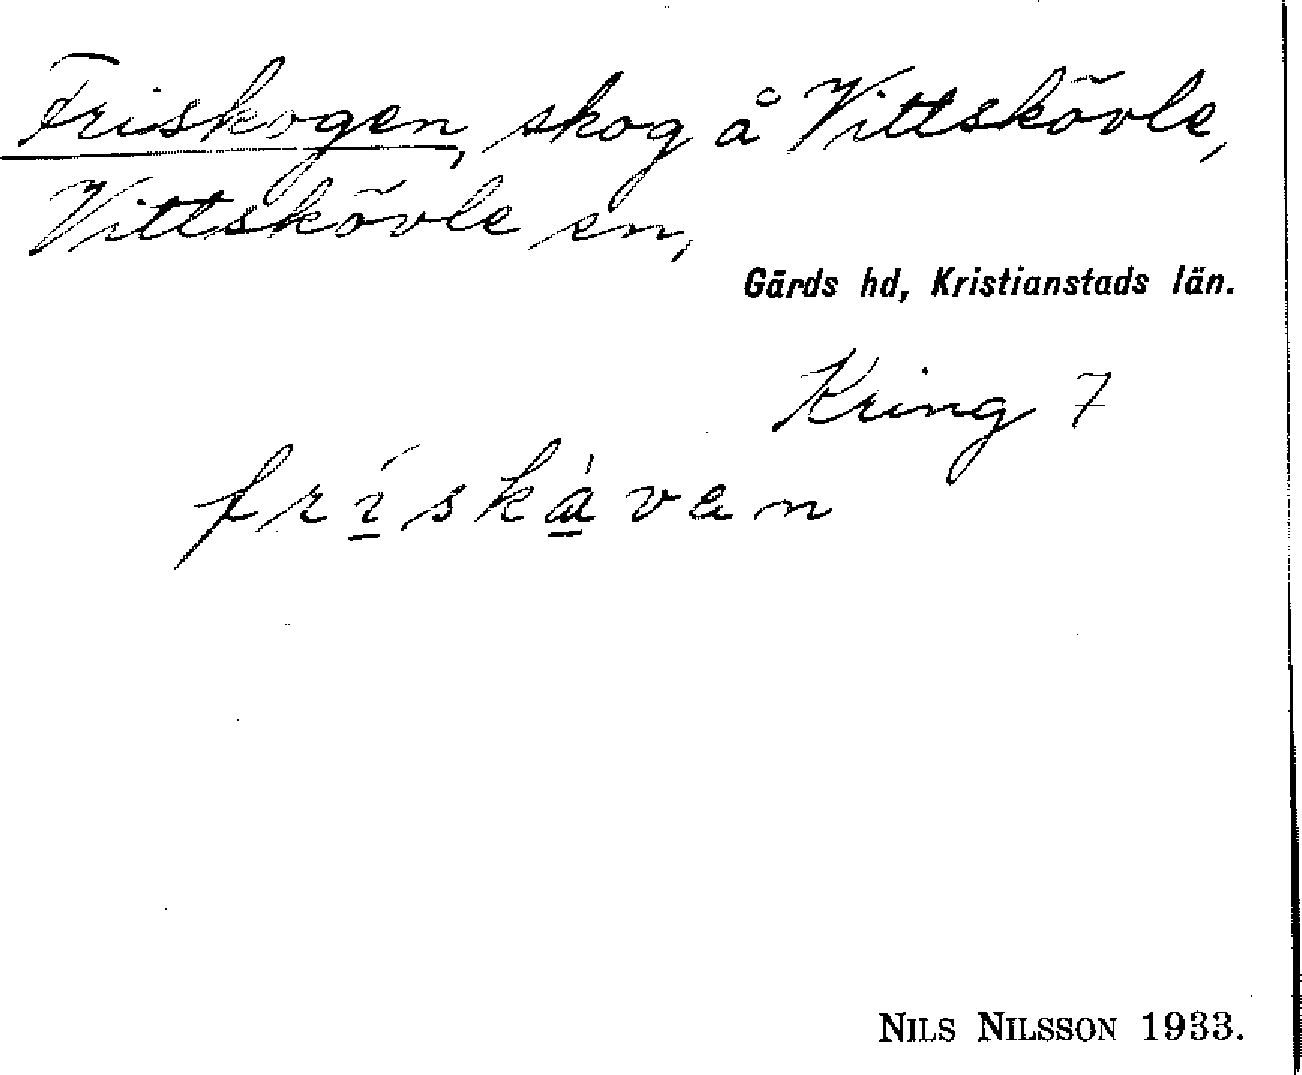 Friskogen, skog å Vittskövle,
Vittskövle sn,
Gärds hd, Kristianstads län.
Kring 7
frískàvan
NILS NILSSON 1933.